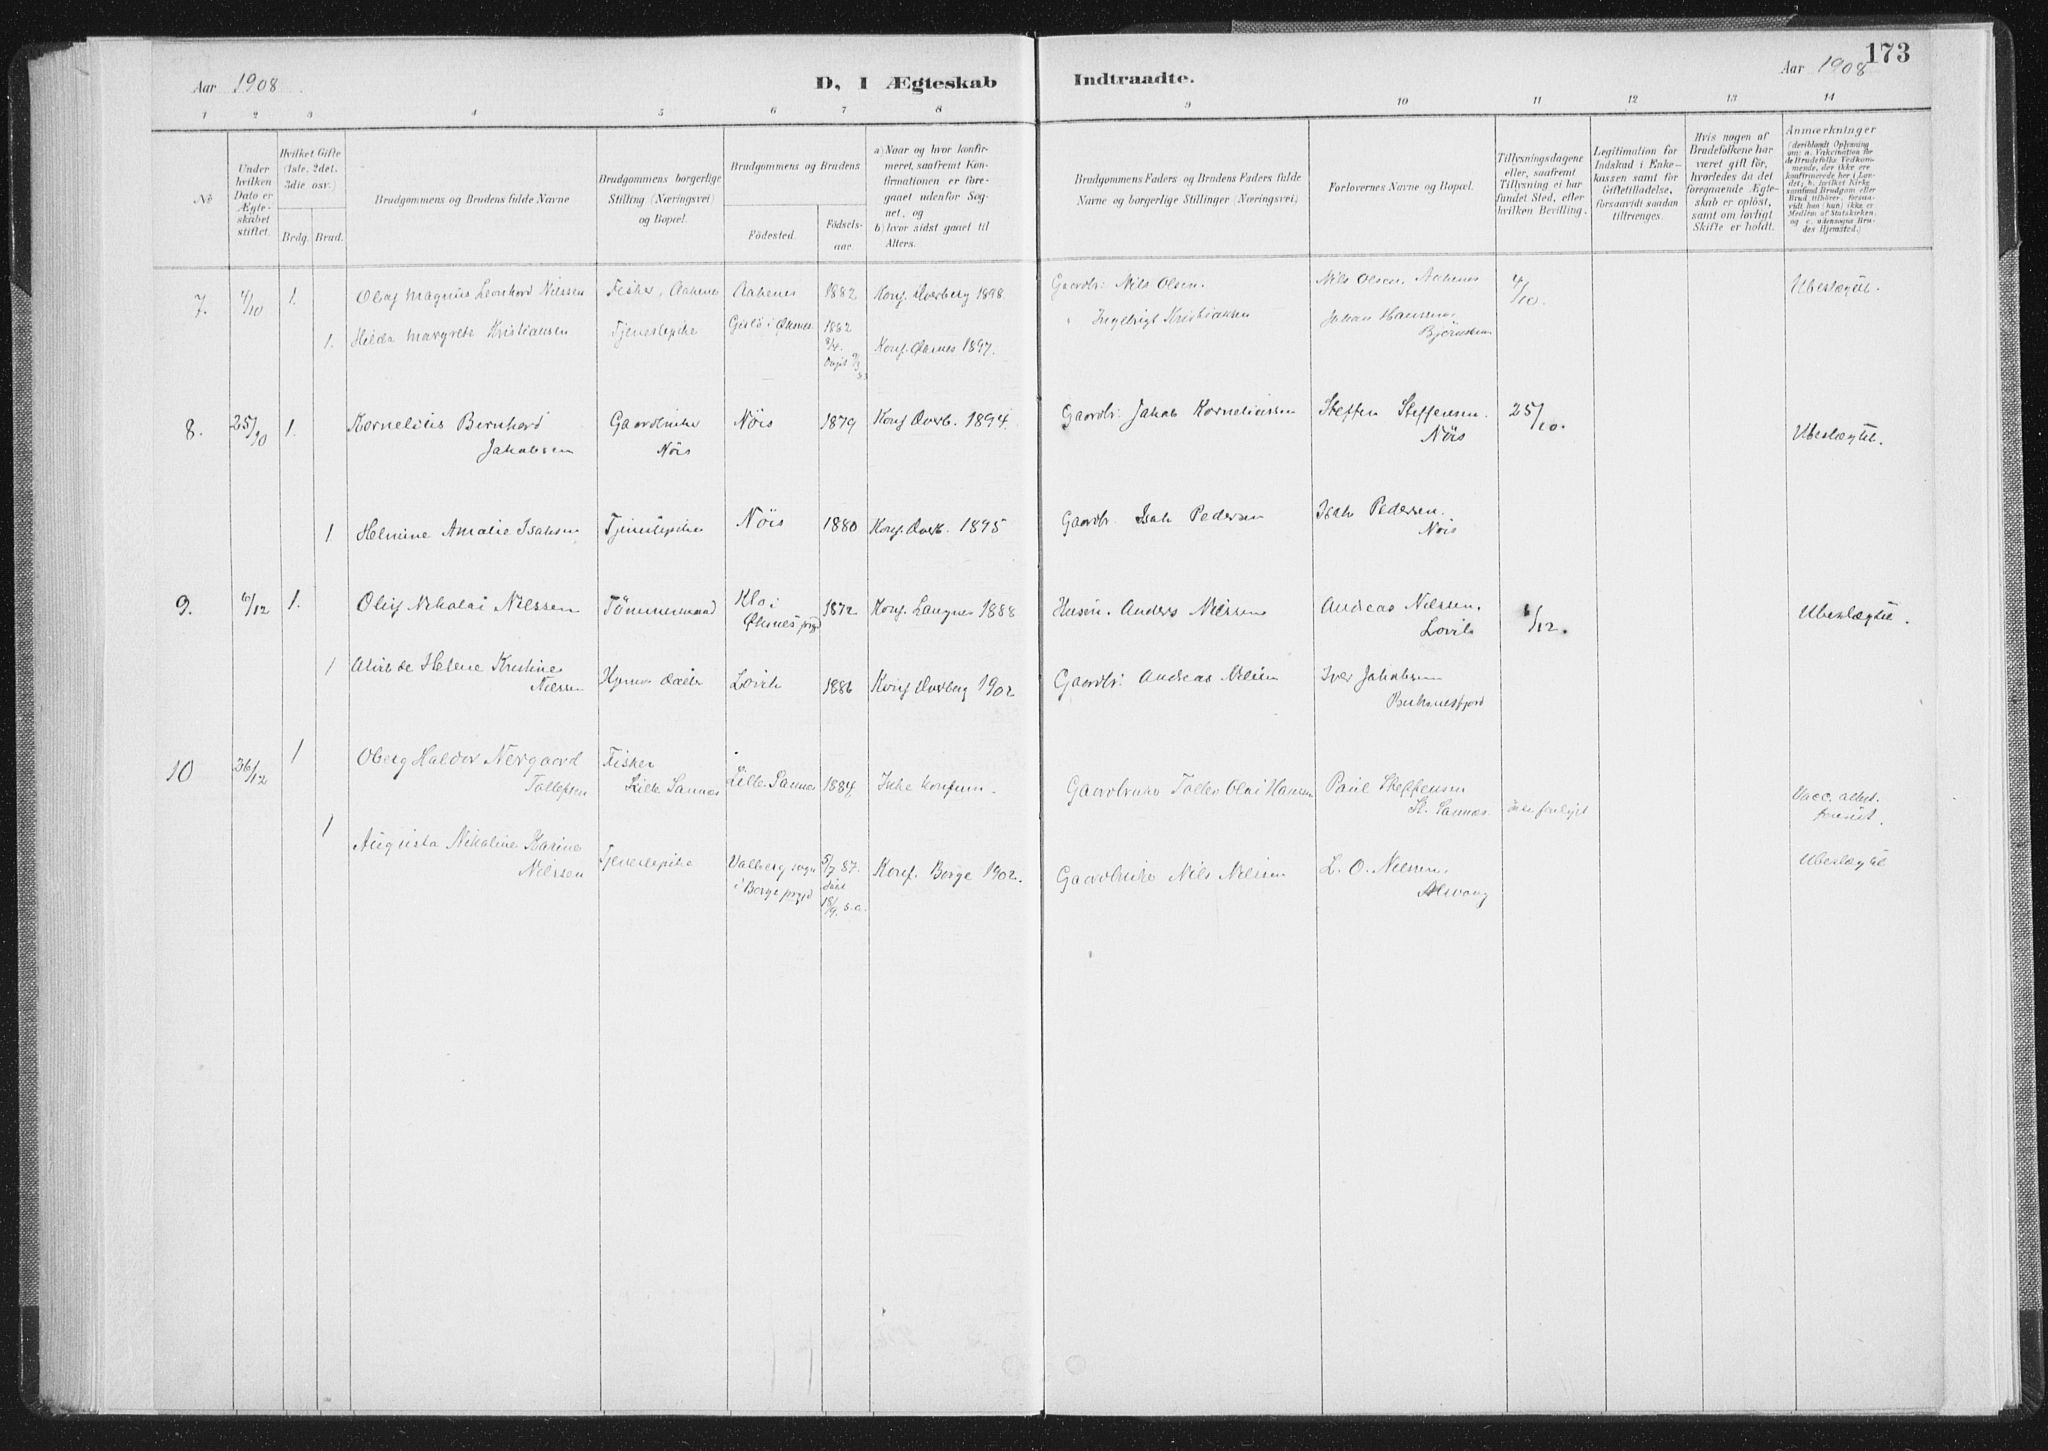 Aar 1908
D, I Ægteskab
Indtraadte.
Aar 1908
173
1 2 3 4 5 6 7 8 9 10 11 12 13 14
No
Under hvilken Dato er Ægteskabet stiftet.
Hvilket Gifte (1ste, 2det, 3die osv.)
Brdg. Brud.
Brudgommens og Brudens fulde Navne
Brudgommens borgerlige Stilling (Næringsvei) og Bopæl.
Brudgommens og Brudens
Fødested.
Fødselsaar.
a) Naar og hvor konfirmeret, saafremt Konfirmationen er foregaaet udenfor Sognet, og
b) hvor sidst gaaet til Alters.
Brudgommens Faders og Brudens Faders fulde Navne og borgerlige Stillinger (Næringsvei)
Forlovernes Navne og Bopæl.
Tillysningsdagene eller, saafremt Tillysning ei har fundet Sted, efter hvilken Bevilling.
Legitimation for Indskud i Enkekassen samt for Giftetilladelse, forsaavidt saadan tiltrænges.
Hvis nogen af Brudefolkene har været gift før, hvorledes da det foregaaende Ægteskab er opløst, samt om lovligt Skifte er holdt.
Anmærkninger (deriblandt Oplysning om: a. Vaccination for de Brudefolks Vedkommende, der ikke ere konfirmerede her i Landet; b. hvilket Kirkesamfund Brudgom eller Brud tilhører, forsaavidt han (hun) ikke er Medlem af Statskirken; og c. udensogns Brudes Hjemsted.)
7. 4/10 1. Olaf Magnus Leonhard Nilssen Fisker, Aakenes Aakenes 1882 Konf. Dverberg 1898. Gaardbr: Nils Olsen. Nils Olsen, Aakenes 4/10. Ubeslægtet.
1. Hilda Margrete Kristiansen Tjenestepike Gisløi Øksnes 1882 Konf. Øksnes 1897. " Ingebrigt Kristiansen Johan Hansen,
Bjørnskin
8. 25/10 1. Kornelius Bernhard Gaardbruker Nöis 1879 Konf. Dverb. 1894. Gaardbr. Jakob Korneliussen Steffen Steffensen. 25/10.
Jakobsen Nöis Nöis Ubeslægtet.
1. Helmine Amalie Isaksen Tjenestepike Nöis 1880 Konf. Dverb. 1895 Gaardbr. Isak Pedersen Isak Pedersen.
Nöis
9. 6/12 1. Oluf Nikolai Nilssen Tömmermand Klo i 1872 Konf. Langnes 1888 Husm. Anders Nilssen Andreas Nilssen, 6/12. Ubeslægtet.
Øksnes prgd Lovik
1 Helene Kristine Lovik 1886 Konf. Dverberg 1902 Gaardbr: Andreas Nilssen Iver Jakobsen
Nilssen Buksnesfjord
10 26/12 1 Oberg Haldor Nergaard Fisker
Tollefsen Lille Sannes Lille Sannes 1884 Ikke konfirm. Gaardbruker Tollef Olai Hansen Paul Steffensen
St. Sannes. Vacc. attest.
1 Augusta Nikoline Karine Tjenestepike Valberg sogn 5/7 87. Konf. Borge 1902. Gaardbruker Nils Nilssen L. O. Nilssen, Ubeslægtet
Nilssen i Borge prgd 18/9. s.a. Alsvaag